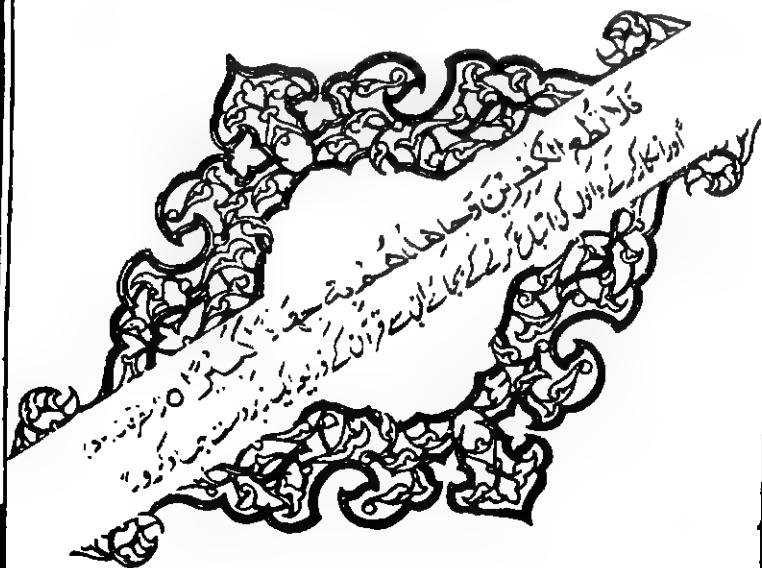 فَلَا تُطِعِ الْكٰفِرِيْنَ وَجَاهِدْهُمْ بِهٖ جِهَادًا كَبِيْرًا ○ (الفرقان۔
"اور انکار کرنے والوں کی اتباع کرنے کے بجائے ان سے قرآن کے ذریعہ ایک زبردست جہاد کرو۔"